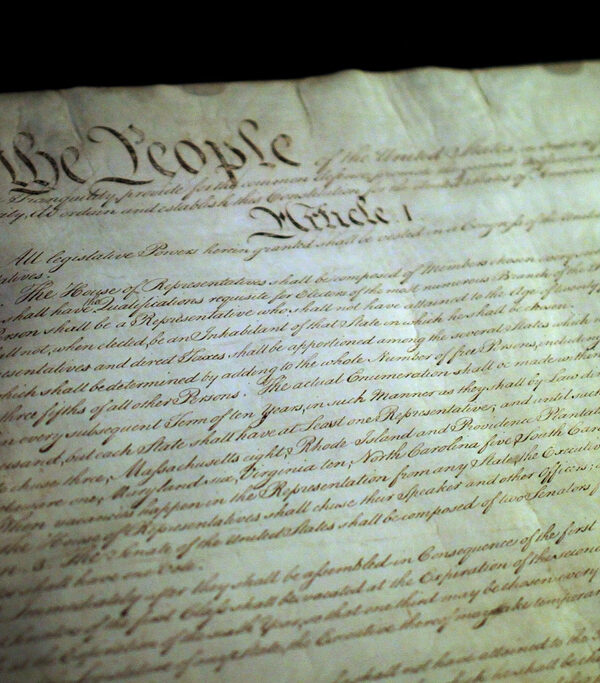 The People of the United States
Tranquility, provide for the common defence, promote
ordain and establish this Constitution for the
Article. I
All legislative Powers herein granted shall be vested in a Congress of the
The House of Representatives shall be composed of Members chosen every
shall have the Qualifications requisite for Electors of the most numerous Branch of the
Person shall be a Representative who shall not have attained to the Age of twenty
not, when elected, be an Inhabitant of that State in which he shall be chosen.
Representatives and direct Taxes shall be apportioned among the several States which
which shall be determined by adding to the whole Number of free Persons, including
three fifths of all other Persons. The actual Enumeration shall be made within
every subsequent Term of ten Years, in such Manner as they shall by Law
but each State shall have at Least one Representative; and until such
chuse three, Massachusetts eight, Rhode Island and Providence Plantations
one, Maryland six, Virginia ten, North Carolina five, South
When vacancies happen in the Representation from any State, the Executive
The House of Representatives shall chuse their Speaker and other Officers;
3. The Senate of the United States shall be composed of two Senators
shall have one Vote.
Immediately after they shall be assembled in Consequence of the first
of the first Class shall be vacated at the Expiration of the second
at the Expiration of the sixth Year, so that one third may be chosen every
of any State, the Executive thereof may make temporary
shall not have attained to the
he shall be